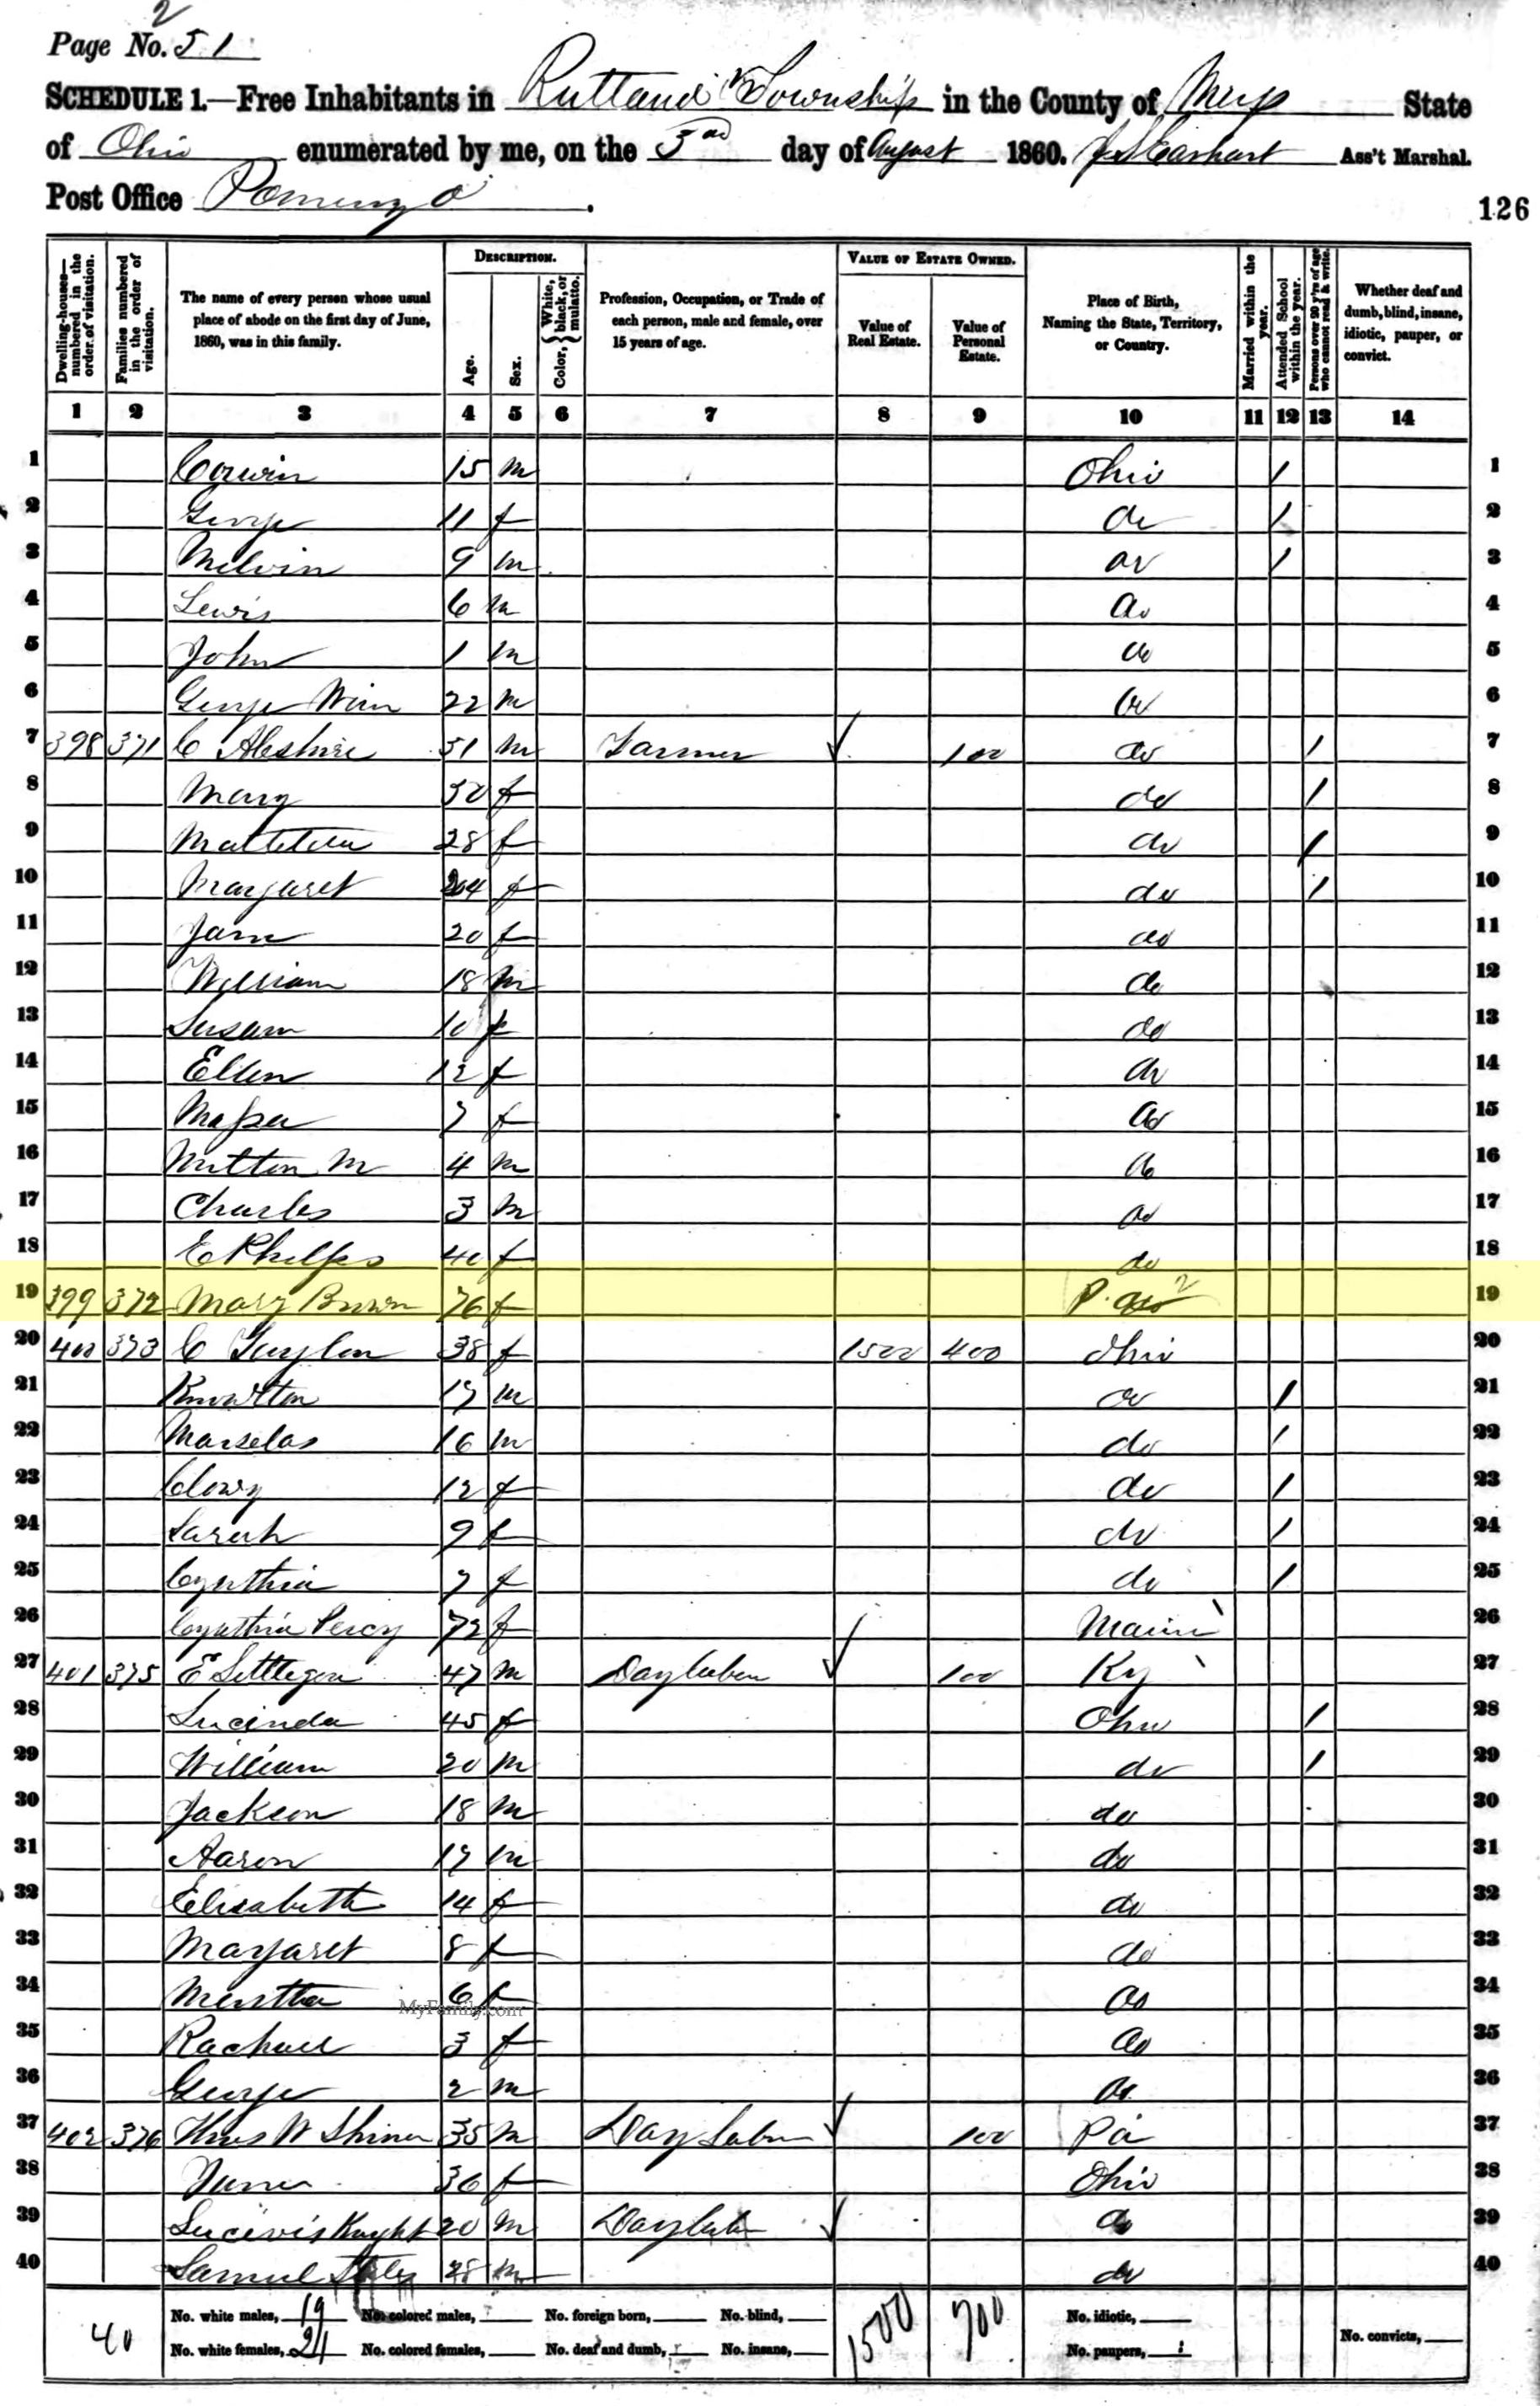 2
Page No. 51
SCHEDULE 1.—Free Inhabitants in Rutland Township in the County of Meigs State
of Ohio enumerated by me, on the 3rd day of August 1860. J S Earhart Ass't Marshal.
Post Office Pomeroy O.
126
DESCRIPTION.
VALUE OF ESTATE OWNED.
Dwelling-houses—numbered in the order of visitation.
Families numbered in the order of visitation.
The name of every person whose usual place of abode on the first day of June, 1860, was in this family.
Age.
Sex.
Color, { White, black, or mulatto.
Profession, Occupation, or Trade of each person, male and female, over 15 years of age.
Value of Real Estate.
Value of Personal Estate.
Place of Birth, Naming the State, Territory, or Country.
Married within the year.
Attended School within the year.
Persons over 20 y'rs of age who cannot read & write.
Whether deaf and dumb, blind, insane, idiotic, pauper, or convict.
1 2 3 4 5 6 7 8 9 10 11 12 13 14
1 Corwin 15 m Ohio / 1
2 George 11 f do / 2
3 Melvin 9 m do / 3
4 Lewis 6 m do 4
5 John 1 m do 5
6 George Winn 22 m do 6
7 398 371 C Abshire 51 m Farmer 100 do / 7
8 Mary 50 f do / 8
9 28 f do / 9
10 Margaret 24 f do / 10
11 Jane 20 f do 11
12 William 18 m do 12
13 Susan 10 f do 13
14 Ellen 12 f do 14
15 7 f do 15
16 Milton M 4 m do 16
17 Charles 3 m do 17
18 E Phelps 40 f do 18
19 399 372 Mary Brown 76 f P. 19
20 400 373 C 38 f 1500 400 Ohio 20
21 Knowlton 17 m do / 21
22 Marselas 16 m do / 22
23 12 f do / 23
24 Sarah 9 f do / 24
25 Cynthia 7 f do / 25
26 Cynthia Percy 72 f Maine 26
27 401 375 E 47 m Day 100 Ky 27
28 Lucinda 45 f Ohio / 28
29 William 20 m do / 29
30 Jackson 18 m do 30
31 Aaron 17 m do 31
32 Elisabeth 14 f do 32
33 Margaret 8 f do 33
34 6 f do 34
35 Rachael 3 f do 35
36 George 2 m do 36
37 402 376 W 35 m Day Labor 100 Pa 37
38 36 f Ohio 38
39 Knight 20 m Day do 39
40 Samuel 28 m do 40
MyFamily.com
40
No. white males, 19 No. colored males, No. foreign born, No. blind, 1500 700 No. idiotic,
No. white females, 21 No. colored females, No. deaf and dumb, No. insane, No. paupers, 1 No. convicts,